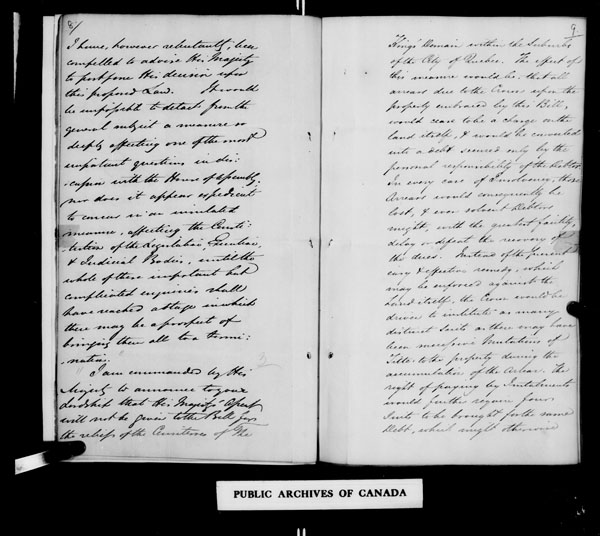 8/
I have, however reluctantly, been
compelled to advise His Majesty
to postpone His decision upon
this proposed Law. It would
be impossible to detach from the
general subject a measure so
deeply affecting one of the most
important questions in dis:
:cussion with the House of Assembly;
nor does it appear expedient
to concur in an insulated
measure, affecting the Consti:
:tution of the Legislative, Executive,
& Judicial Bodies, until the
whole of these important but
complicated enquiries shall
have reached a stage in which
there may be a prospect of
bringing them all to a termi:
:nation.
"I am commanded by His
Majesty to announce to your
Lordship that His Majesty's Assent
will not be given to the Bill for
the relief of the Censitaires of the
9
King's Domain within the Suburbs
of the City of Quebec. The effect of
this measure would be, that all
arrears due to the Crown upon the
property embraced by this Bill,
would cease to be a charge on the
land itself, & would be converted
into a debt secured only by the
personal responsibility of the debtor.
In every case of Insolvency, these
Arrears would consequently be
lost, & even solvent Debtors
might, with the greatest facility,
delay or defeat the recovery of
the dues. Instead of the present
easy & effective remedy, which
may be enforced against the
Land itself, the Crown would be
driven to institute as many
distinct Suits as there may have
been successive Mutations of
Title to the property during the
accumulation of the Arrear. The
right of paying by Instalments
would further require four
Suits to be brought for the same
Debt, which might otherwise
PUBLIC ARCHIVES OF CANADA